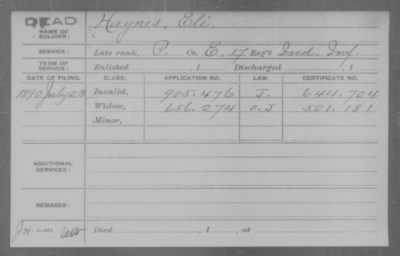 DEAD
NAME OF SOLDIER: Haynes, Eli
SERVICE: Late rank, P. Co. E. 17 Reg't Ind. Inf.
TERM OF SERVICE: Enlisted , 1 Discharged , 1
DATE OF FILING. CLASS. APPLICATION NO. LAW. CERTIFICATE NO.
1890 July 23 Invalid, 905.476 J. 644.704
Widow, 656.274 O.J 501.181
Minor,
ADDITIONAL SERVICES:
REMARKS:
Died , 1 , at